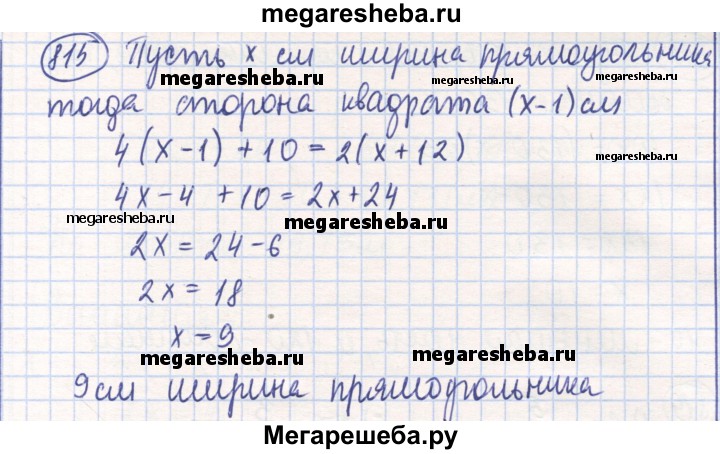 megaresheba.ru
815 Пусть x см ширина прямоугольника
megaresheba.ru
megaresheba.ru
тогда сторона квадрата (x-1) см
4(x-1)+10=2(x+12)
megaresheba.ru
4x-4+10=2x+24
megaresheba.ru
megaresheba.ru
2x=24-6
2x=18
x=9
megaresheba.ru
megaresheba.ru
9 см ширина прямоугольника
Мегарешеба.ру